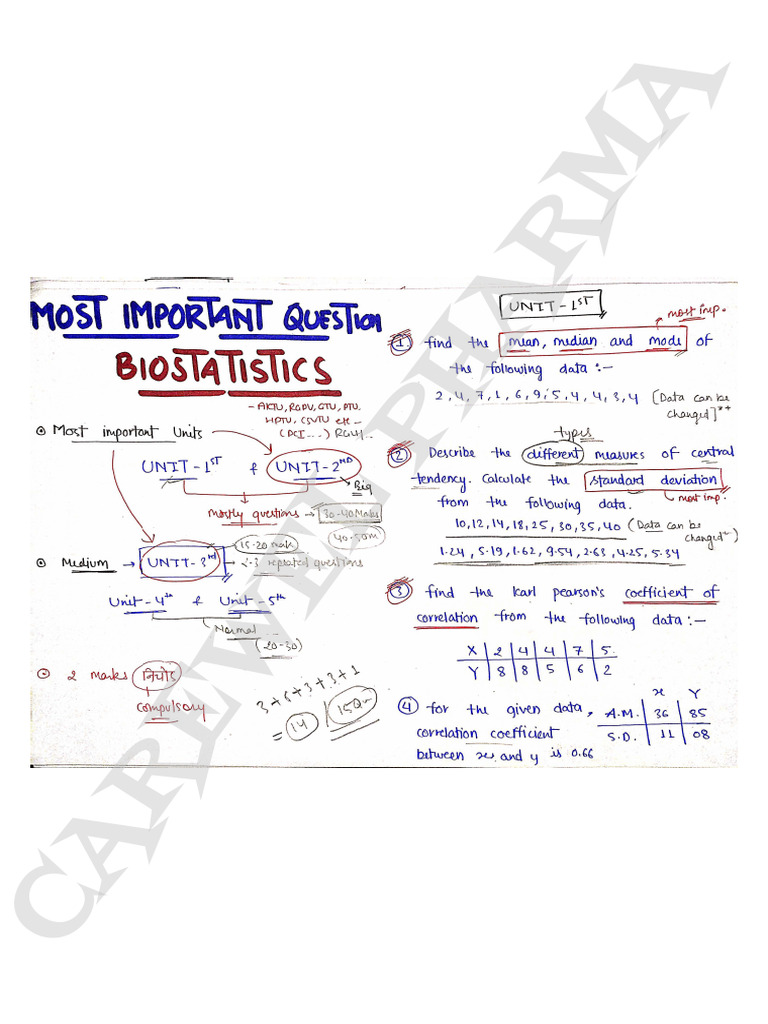 MOST IMPORTANT QUESTION
BIOSTATISTICS
- AKTU, RGPV, GTU, PTU,
HPTU, CSVTU etc -
(PCI...) RGUH..
⊙ Most important Units
UNIT-1ST & UNIT-2ND
Big
Mostly questions → 30-40 Marks
40-50m
15-20 mak
⊙ Medium → UNIT-3rd → 2-3 repeated questions
Unit-4th & Unit-5th
Normal...
(20-30)
⊙ 2 marks निचोड़
compulsory
3+6+3+3+1
= 14 / 15Qu
UNIT-1ST
most imp.
① find the mean, median and mode of
the following data :-
2,4,7,1,6,9,5,4,4,3,4 [Data can be
changed]**
types
② Describe the different measures of central
tendency. Calculate the standard deviation
most imp.
from the following data.
10,12,14,18,25,30,35,40 (Data can be
changed)
1.24, 5.19, 1.62, 9.54, 2.63, 4.25, 5.34
③ find the karl pearson's coefficient of
correlation from the following data:-
X 2 4 4 7 5
Y 8 8 5 6 2
④ for the given data,
correlation coefficient
between x and y is 0.66
x Y
A.M. 36 85
S.D. 11 08
CAREWELL PHARMA